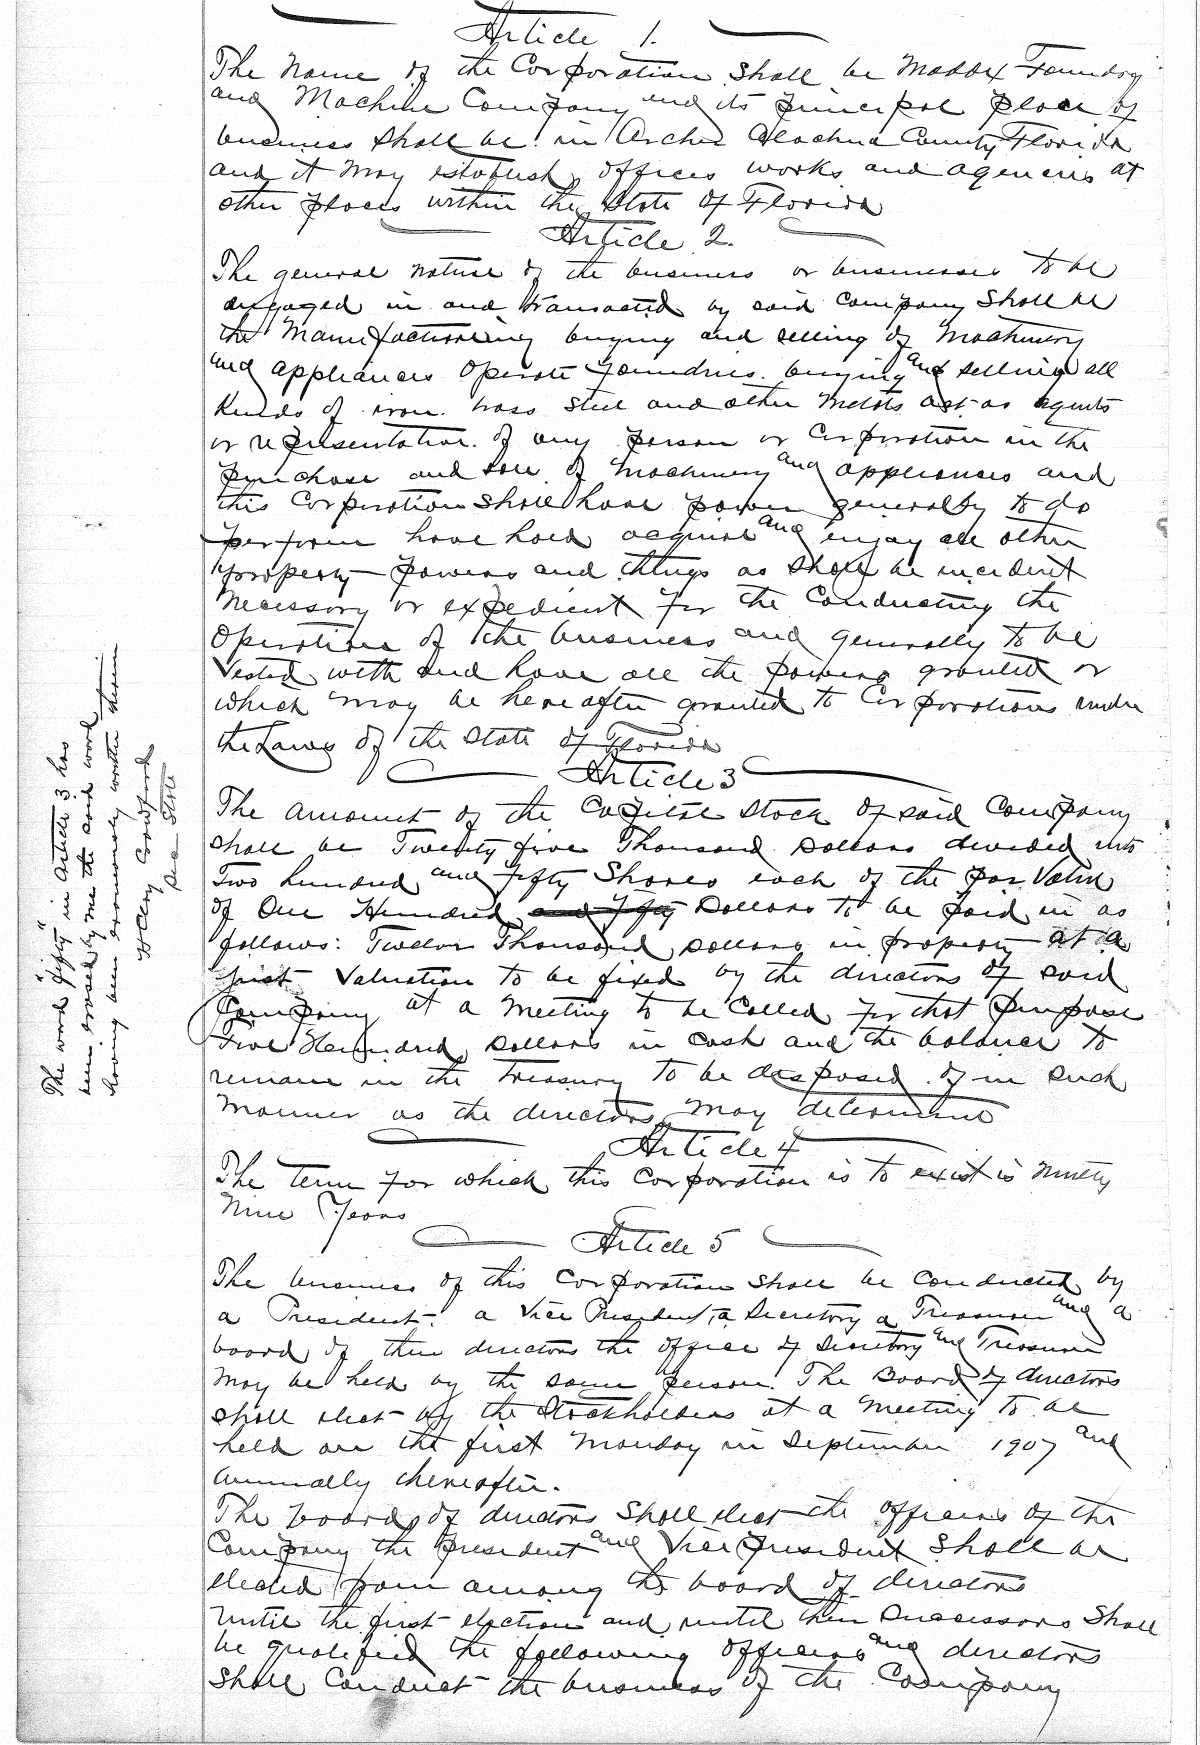 Article 1.
The Name of the Corporation shall be Maddox Foundry
and Machine Company and its principal place of
business shall be in Archer Alachua County Florida
and it may establish offices works and agencies at
other places within the State of Florida
Article 2.
The general nature of the business or businesses to be
engaged in and transacted by said Company Shall be
the Manufactureing buying and selling of Machinery
and appliances Operate foundries. buying and selling all
kinds of iron. brass steel and other metals act as agents
or representative. of any person or Corporation in the
purchase and sale of Machinery and appliances and
this Corporation shall have power generally to do
perform have hold acquire and enjoy all other
property powers and things as shall be incident
necessary or expedient for the Conducting the
Operations of the business and generally to be
Vested with and have all the powers granted or
which may be hereafter granted to Corporations under
the Laws of the State of Florida
Article 3
The amount of the Capital Stock of said Company
shall be Twenty five Thousand Dollars divided into
Two hundred and fifty Shares each of the par Value
of One Hundred and fifty Dollars to be paid in as
follows: Twelve Thousand Dollars in property at a
just Valuation to be fixed by the directors of said
Company at a Meeting to be Called for that purpose
Five Hundred Dollars in Cash and the balance to
remain in the treasury to be disposed of in such
Manner as the directors may determine
Article 4
The term for which this Corporation is to exist is Ninety
Nine Years
Article 5
The business of this Corporation shall be Conducted by
a President. a Vice President, a Secretary a Treasurer and a
board of three directors the office of Secretary and Treasurer
May be held by the same person. The Board of directors
shall elect by the Stockholders at a Meeting to be
held on the first Monday in September 1907 and
annually thereafter.
The board of directors Shall elect the officers of the
Company the president and Vice president Shall be
elected from among the board of directors
Until the first election and until their Successors Shall
be qualified the following officers and directors
Shall Conduct the business of the Company
The word "fifty" in Article 3 has
been erased by me the said word
having been erroneously written therein
H Clay Crawford
Sec State